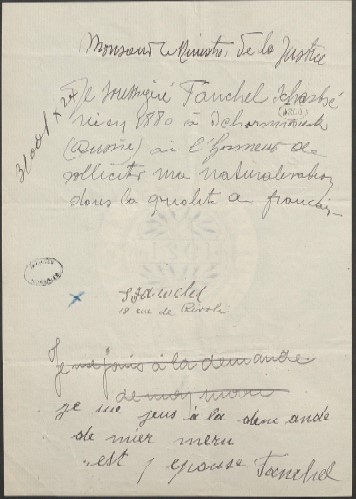 Monsieur le Ministre de la Justice
31001 X 24
Je soussigné Fanchel
né en 1880 à
(Russie) ai l'honneur de
sollicité ma naturalisation
dans la qualité de français
Fanchel
18 rue de Rivoli
Je me joins à la demande
de mon mari
je me jeus à la demande
de mier meru
est épouse Fanchel